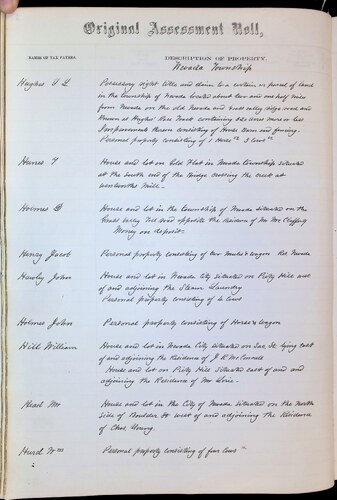 Original Assessment Roll,
NAMES OF TAX PAYERS.
DESCRIPTION OF PROPERTY.
Nevada Township
Hughes
Possessory right title and claim to a certain parcel of land
in the township of Nevada located about two and one half miles
from Nevada on the old Nevada and Grass valley ridge road and
Known as Hughes Race Track containing acres more or less
Improvements thereon consisting of House Barn and fencing.
Personal property consisting of 1 Horse 3 Cows
Hines T
House and lot on Gold Flat in Nevada Township situated
at the south end of the Bridge crossing the creek at
Mill.
Holmes D
House and lot in the Township of Nevada situated on the
Grass Valley road opposite the Residence of Mr
Money on deposit.
Henry Jacob
Personal property consisting of two Mules & wagon
Hawley John
House and lot in Nevada City situated on Piety Hill east
of and adjoining the Steam Laundry
Personal property consisting of Cow
Holmes John
Personal property consisting of Horse & wagon
Hill William
House and lot in Nevada City situated on St lying east
of and adjoining the Residence of J R McConnell
House and lot on Piety Hill situated east of and
adjoining the Residence of Mr
Mr
House and lot in the City of Nevada situated on the North
side of Boulder St west of and adjoining the Residence
of Chas Young.
Hurd Wm
Personal property consisting of four Cows